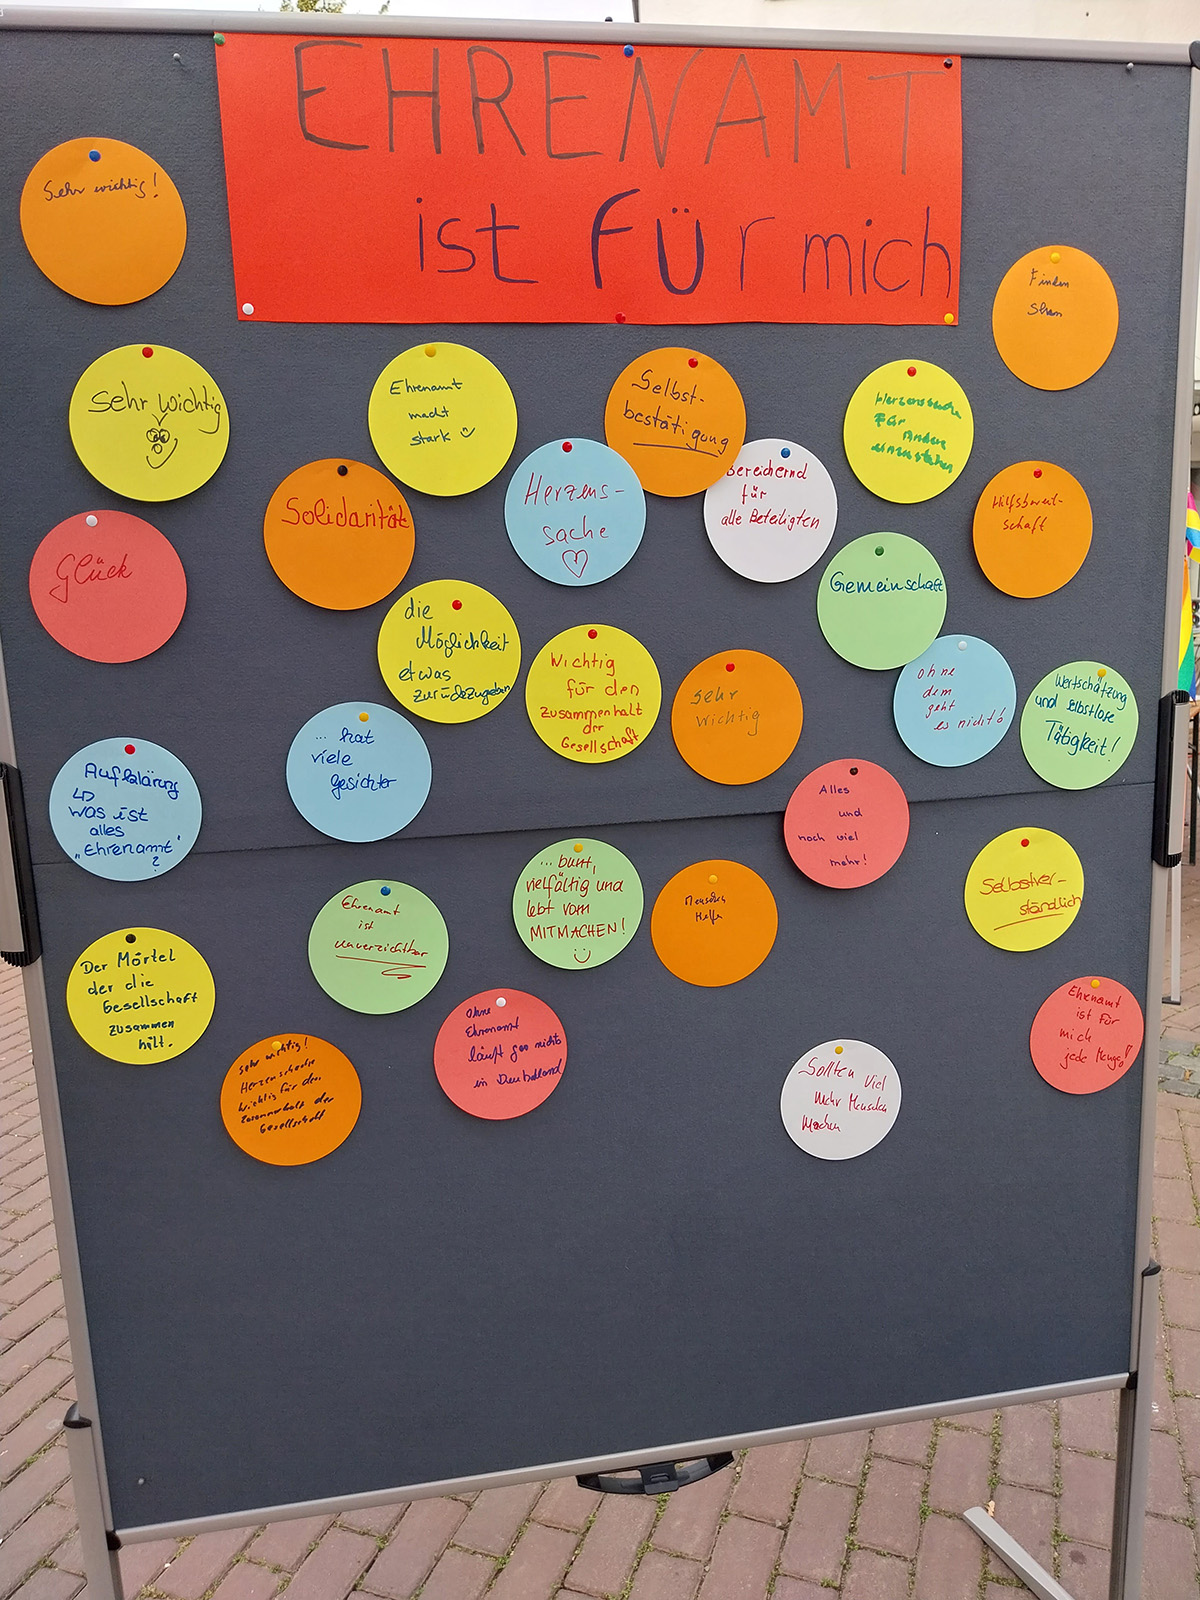 EHRENAMT
ist für mich
Sehr wichtig!
Finden
Sehr wichtig
Ehrenamt
macht
stark
Selbst-
bestätigung
Herzenssache
für
Andere
einzustehen
Solidarität
Herzens-
sache
Bereichernd
für
alle Beteiligten
Hilfsbereit-
schaft
Glück
die
Möglichkeit
etwas
zurückzugeben
Wichtig
für den
Zusammenhalt
der
Gesellschaft
sehr
wichtig
Gemeinschaft
ohne
dem
geht
es nicht!
Wertschätzung
und selbstlose
Tätigkeit!
Aufklärung
was ist
alles
„Ehrenamt"
?
... hat
viele
gesichter
Alles
und
noch viel
mehr!
... bunt,
vielfältig und
lebt vom
MITMACHEN!
Menschen
Helfen
Selbstver-
ständlich
Ehrenamt
ist
unverzichtbar
Der Mörtel
der die
Gesellschaft
zusammen
hält.
sehr wichtig!
Herzenssache
wichtig für den
Zusammenhalt der
Gesellschaft
ohne
Ehrenamt
läuft gar nichts
in Deutschland
Sollten viel
mehr Menschen
machen
Ehrenamt
ist für
mich
jede Menge!